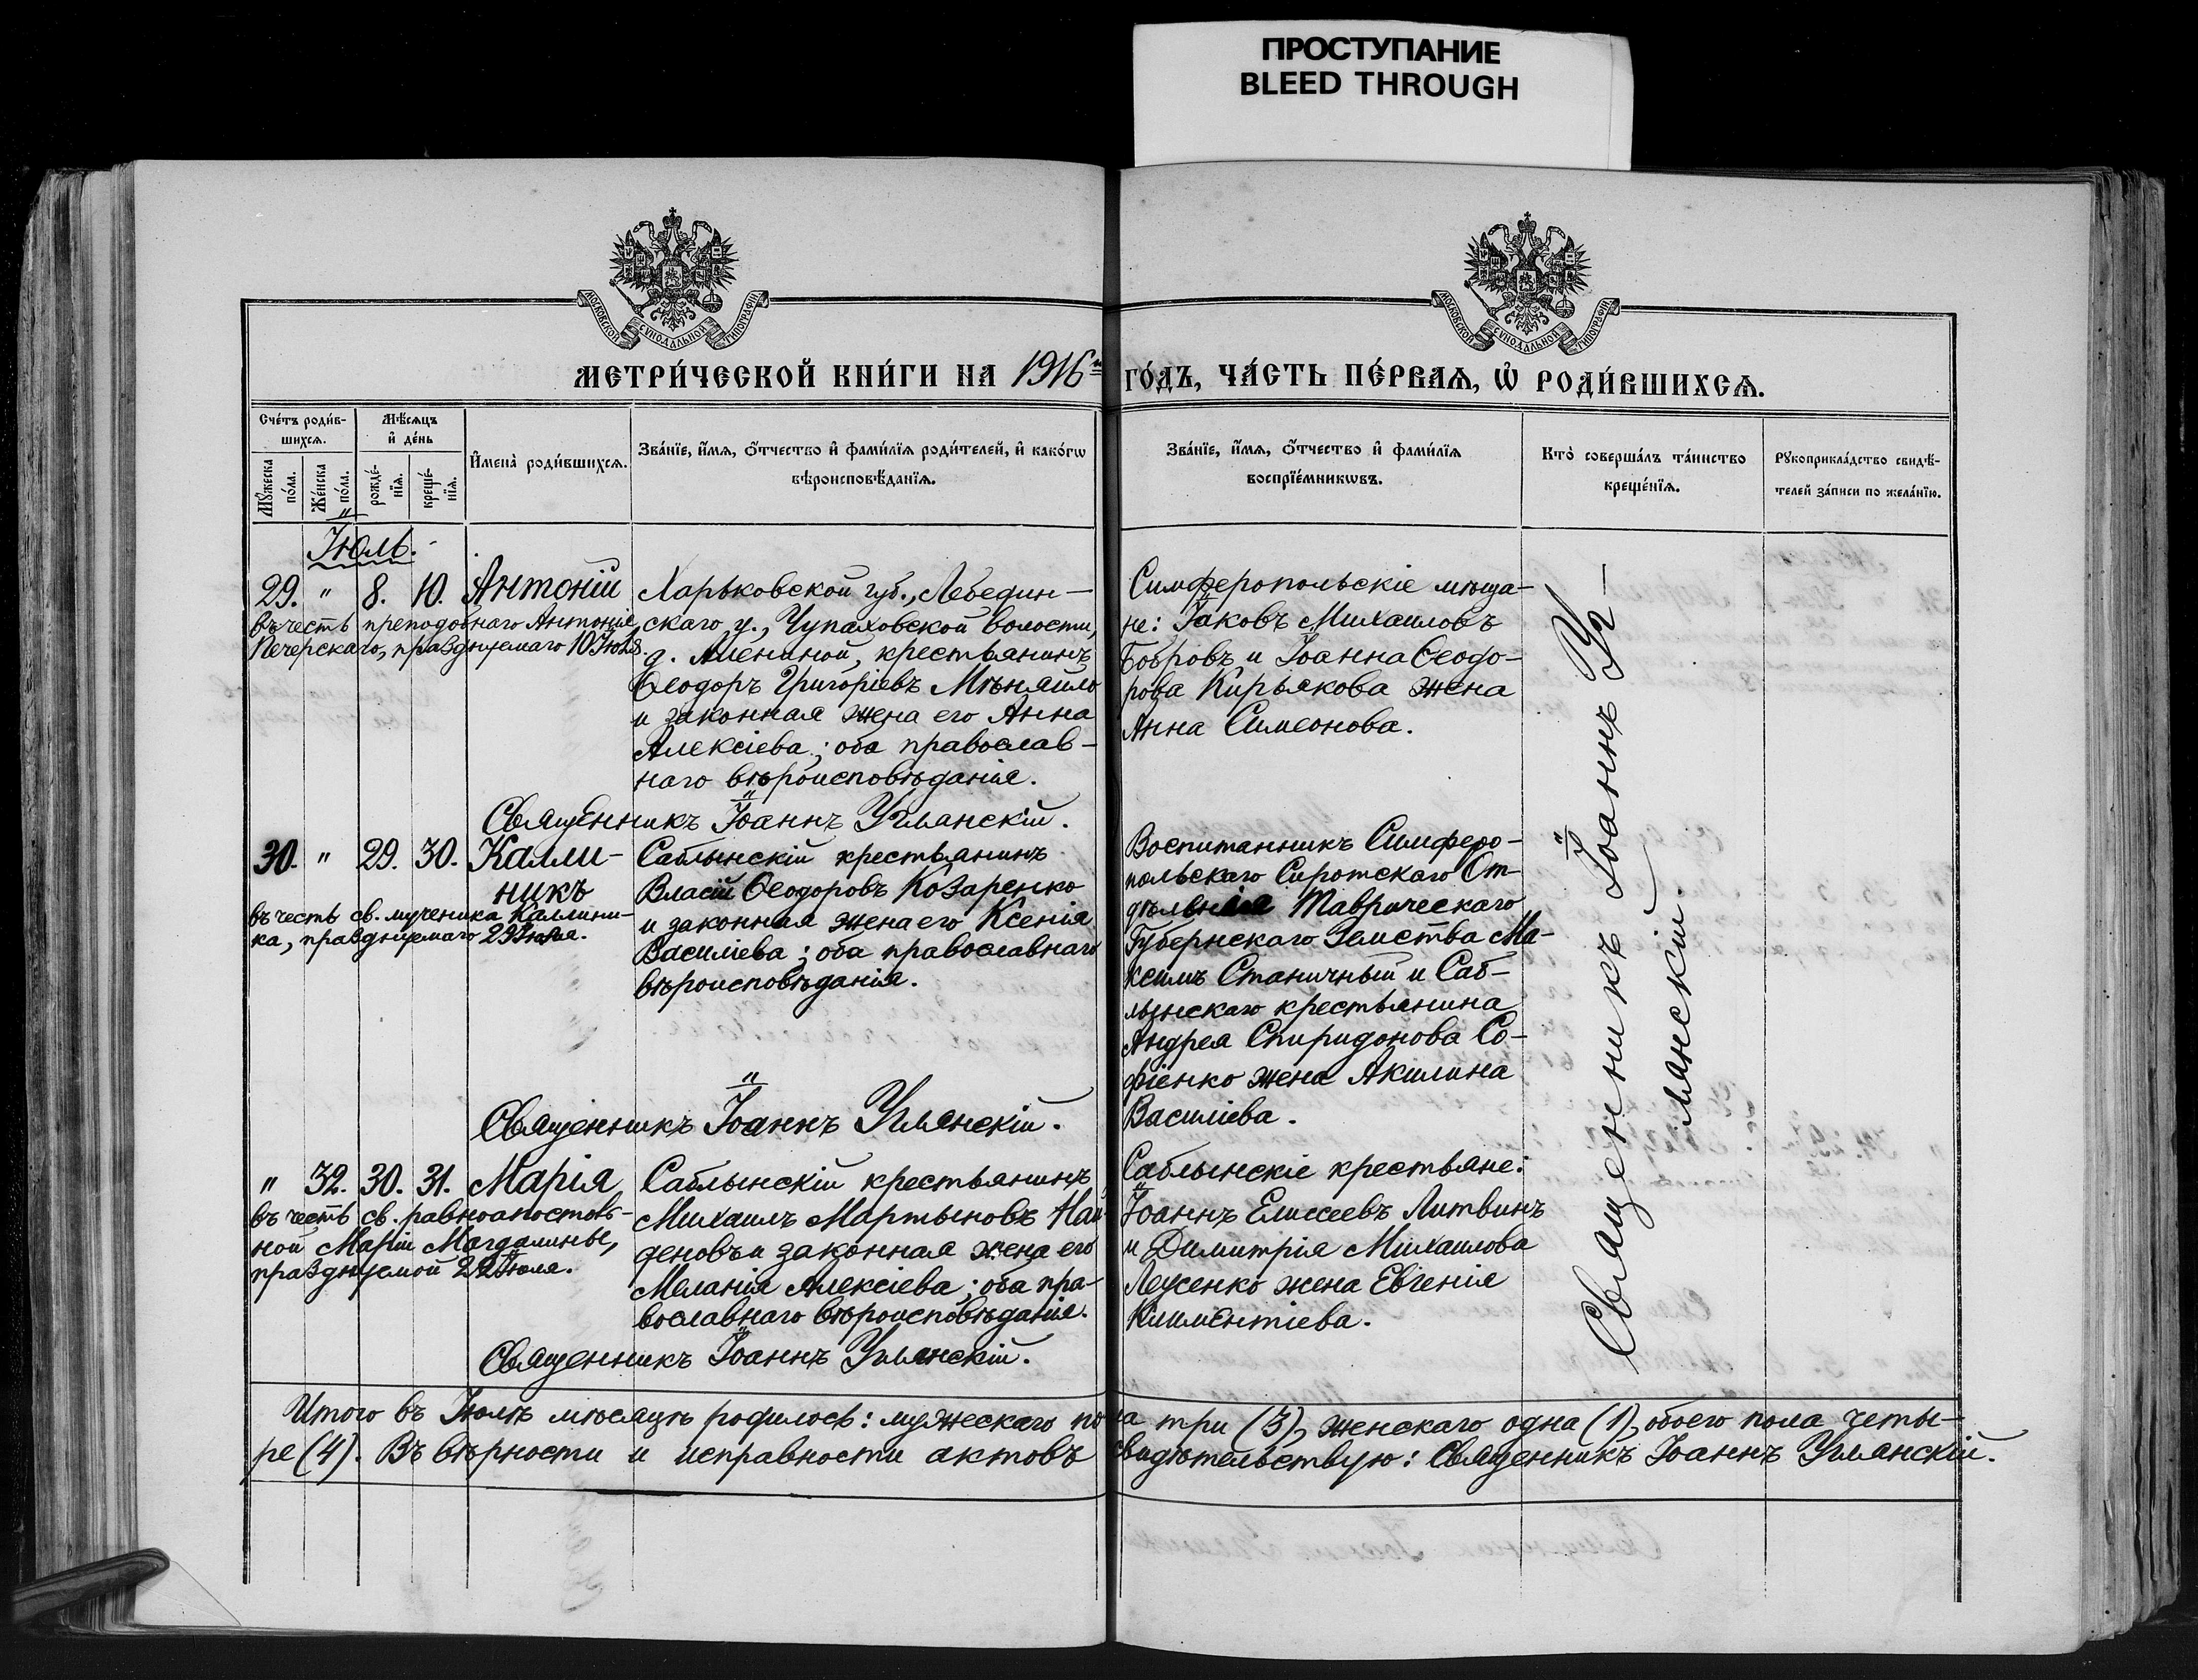 ПРОСТУПАНИЕ
BLEED THROUGH
МОСКОВСКОЙ СѴНОДАЛЬНОЙ ТИПОГРАФІИ
МОСКОВСКОЙ СѴНОДАЛЬНОЙ ТИПОГРАФІИ
МЕТРИ́ЧЕСКОЙ КНИ́ГИ НА 1916й ГО́ДЪ, ЧА́СТЬ ПЕ́РВАѦ, Ѡ҆ РОДИ́ВШИХСѦ.
Сче́тъ роди́в-
шихсѧ.
Мѣ́сѧцъ
и҆ де́нь
Мꙋ́жеска по́ла.
Же́нска по́ла.
рожде́-
нїѧ.
креще́-
нїѧ.
И҆мена̀ роди́вшихсѧ.
Зва́нїе, и҆́мѧ, ѻ҆́тчество и҆ фами́лїѧ роди́телей, и҆ како́гѡ
вѣроисповѣ́данїѧ.
Зва́нїе, и҆́мѧ, ѻ҆́тчество и҆ фами́лїѧ
воспрїе́мникѡвъ.
Кто̀ соверша́лъ та́инство
креще́нїѧ.
Рꙋкоприкла́дство свидѣ́-
телей за́писи по жела́нїю.
Іюль.
29. " 8. 10. Антоній
въ честь преподобнаго Антонія
Печерскаго, празднуемаго 10 Іюля.
Харьковской губ., Лебедин-
скаго у., Чупаховской волости,
д. Алениной, крестьянинъ
Ѳеодоръ Григоріевъ Мѣняйло
и законная жена его Анна
Алексіева; оба православ-
наго вѣроисповѣданія.
Священникъ Іоаннъ Углянскій.
Симферопольскіе мѣща-
не: Іаковъ Михаиловъ
Бобровъ и Іоанна Ѳеодо-
рова Кирьякова жена
Анна Симеонова.
30. " 29. 30. Калли-
никъ
въ честь св. мученика Каллини-
ка, празднуемаго 29 Іюля.
Саблынскій крестьянинъ
Власій Ѳеодоровъ Козаренко
и законная жена его Ксенія
Василіева; оба православнаго
вѣроисповѣданія.
Священникъ Іоаннъ Углянскій.
Воспитанникъ Симферо-
польскаго Сиротскаго От-
дѣленія Таврическаго
Губернскаго Земства Ма-
ксимъ Станичный и Саб-
лынскаго крестьянина
Андрея Спиридонова Со-
фіенко жена Акилина
Василіева.
" 32. 30. 31. Марія
въ честь св. равноапостоль-
ной Маріи Магдалины,
празднуемой 22 Іюля.
Саблынскій крестьянинъ
Михаилъ Мартыновъ Най-
деновъ и законная жена его
Меланія Алексіева; оба пра-
вославнаго вѣроисповѣданія.
Священникъ Іоаннъ Углянскій.
Саблынскіе крестьяне:
Іоаннъ Елисеевъ Литвинъ
и Димитрія Михаилова
Леусенко жена Евгенія
Климентіева.
Священникъ Іоаннъ Уг-
лянскій.
Итого въ Іюлѣ мѣсяцѣ родилось: мужескаго пола три (3), женскаго одна (1), обоего пола четы-
ре (4). Въ вѣрности и исправности актовъ свидѣтельствую: Священникъ Іоаннъ Углянскій.